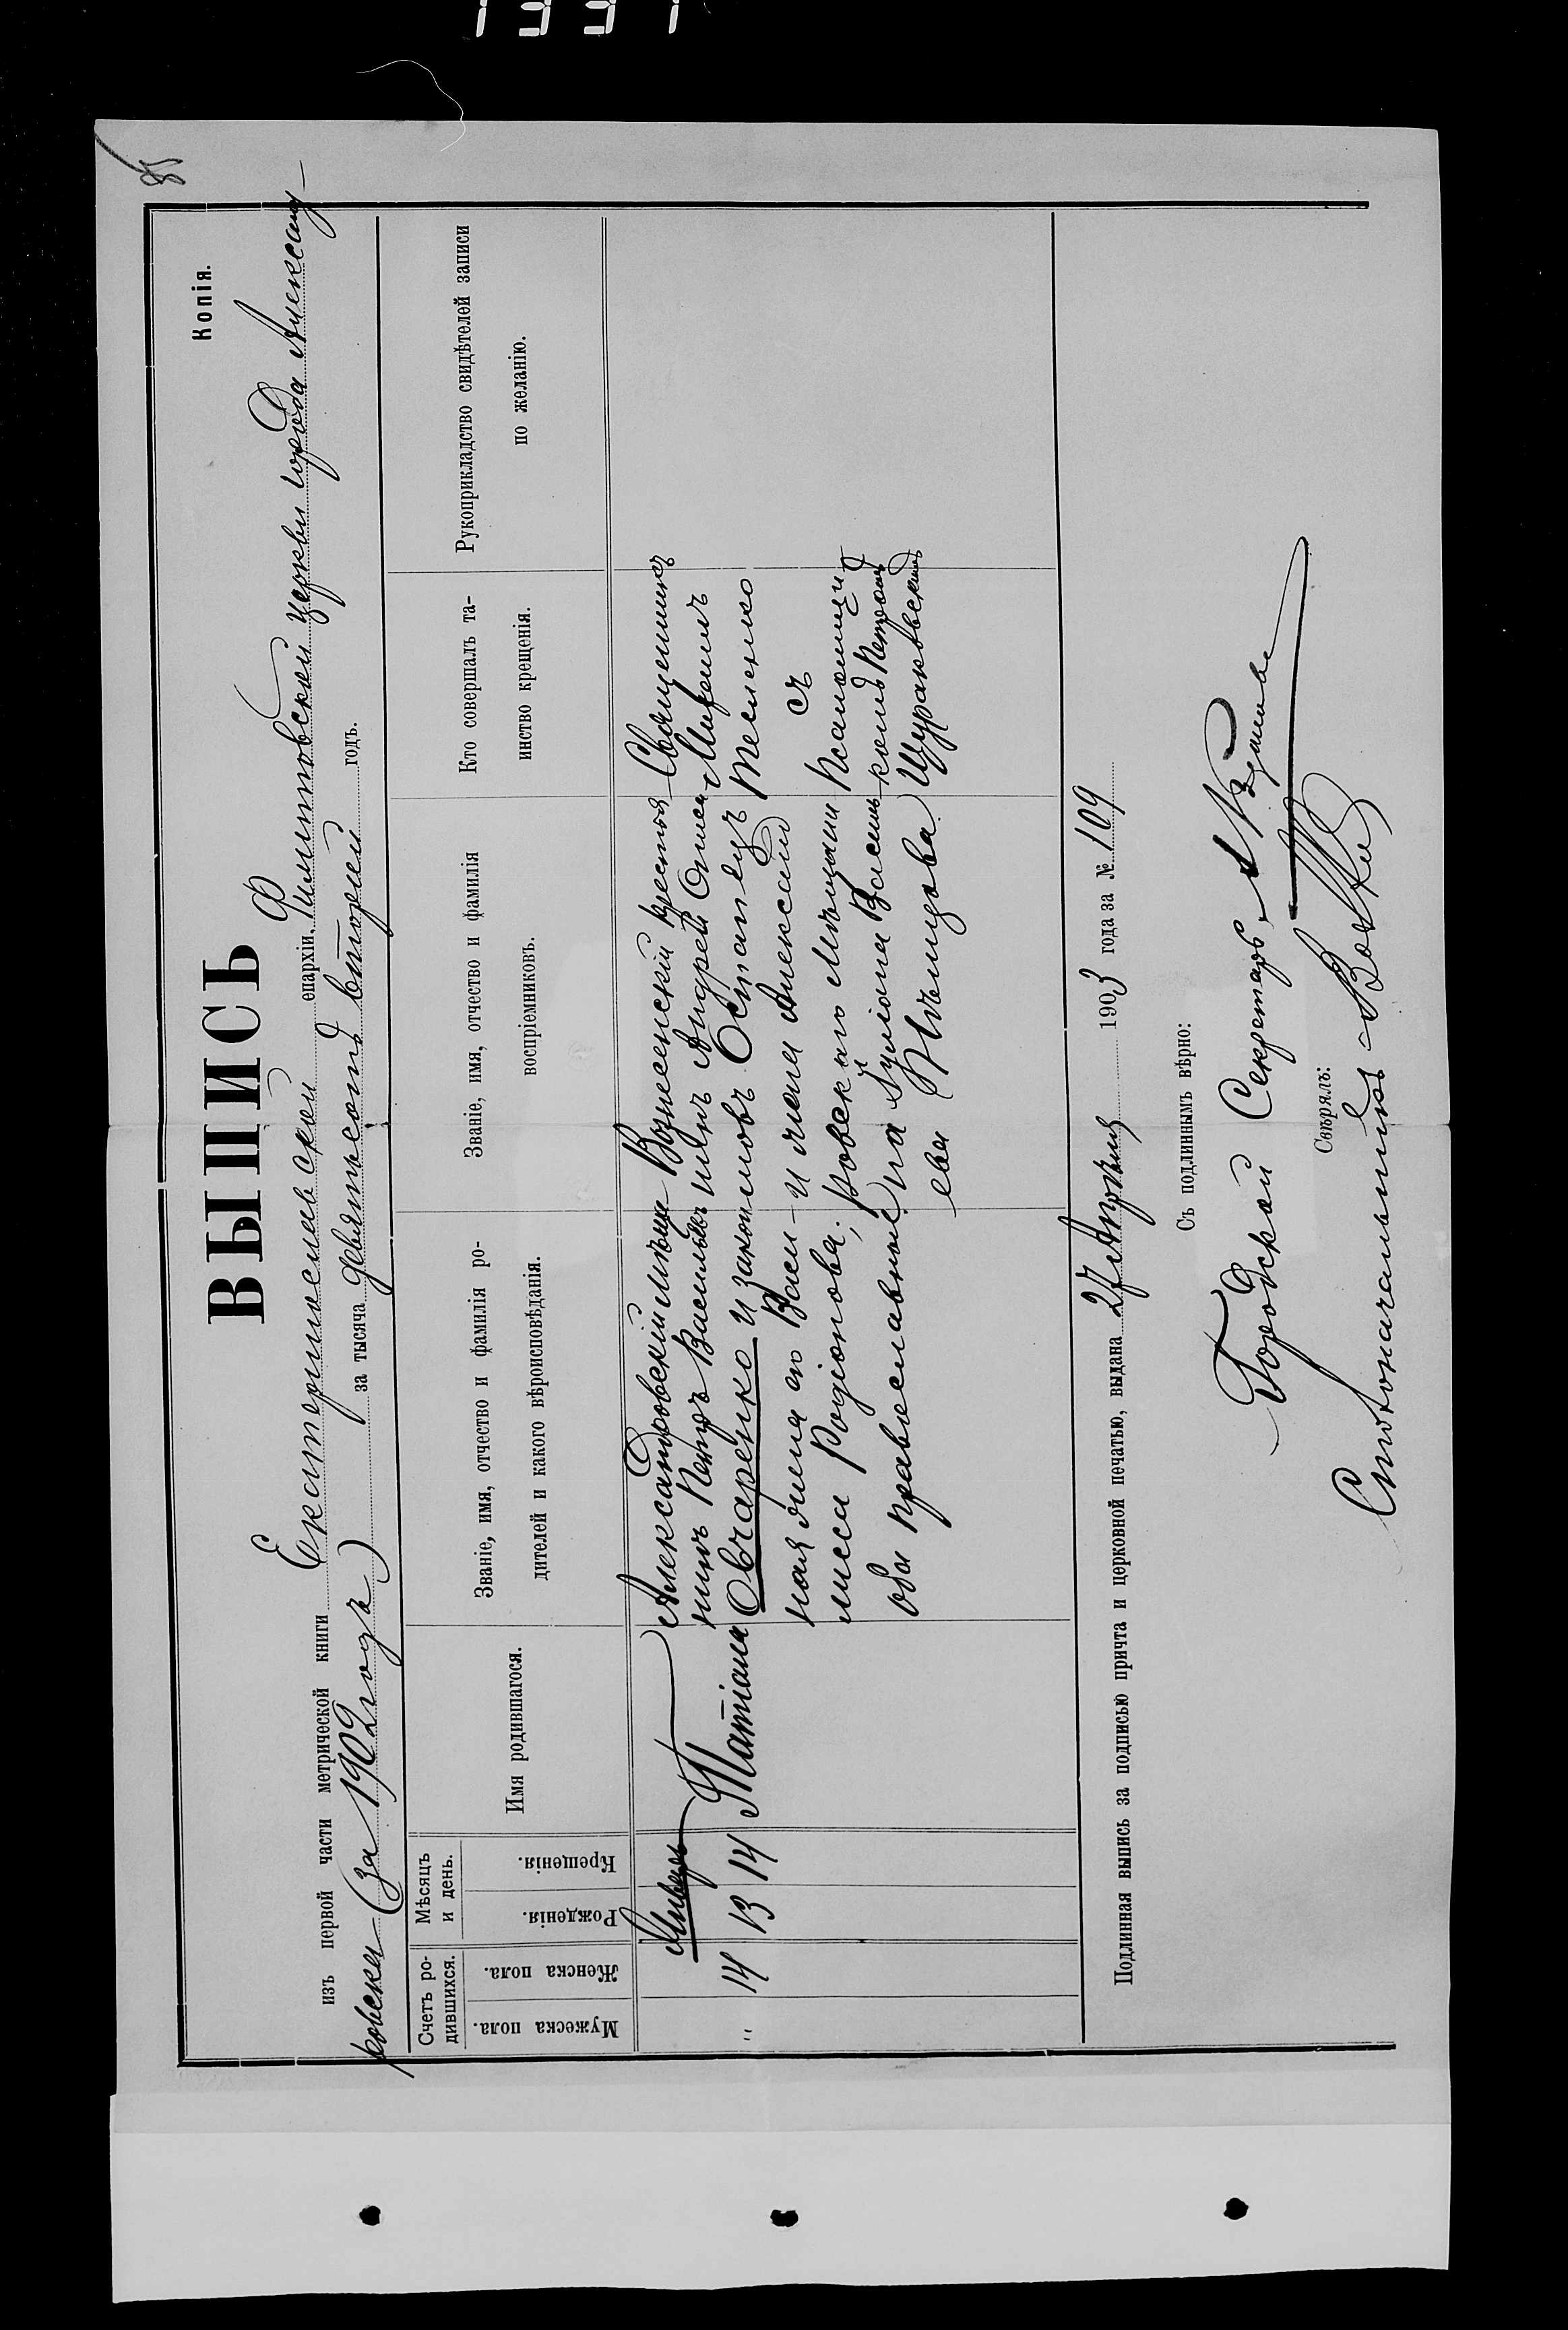 Копія.
ВЫПИСЬ
изъ первой части метрической книги Екатеринославской епархіи, Филипповской церкви города Александ-
ровска (за 1902 годъ) за тысяча девятьсотъ второй годъ.
Счетъ ро-
дившихся.
Мужеска пола.
Женска пола.
Мѣсяцъ
и день.
Рожденія.
Крещенія.
Имя родившагося.
Званіе, имя, отчество и фамилія ро-
дителей и какого вѣроисповѣданія.
Званіе, имя, отчество и фамилія
воспріемниковъ.
Кто совершалъ та-
инство крещенія.
Рукоприкладство свидѣтелей записи
по желанію.
Январь
" 14 13 14 Татіана
Александровскій мѣща-
нинъ Петръ Васильевъ
Овчаренко и закон-
ная жена его Васи-
лисса Родіонова;
оба православные
Вознесенскій крестья-
нинъ Андрей Онисі-
мовъ Остапецъ
и жена Александ-
ровскаго мѣщани
на Іуліана Василь-
ева Нѣмцова
Священникъ
Миронъ
Тесленко
съ
Псаломщи
комъ Петромъ
Щураковскимъ
Подлинная выпись за подписью причта и церковной печатью, выдана 27 Апрѣля 1903 года за № 109
Съ подлиннымъ вѣрно:
Городской Секретарь
Свѣрялъ:
Столоначальникъ